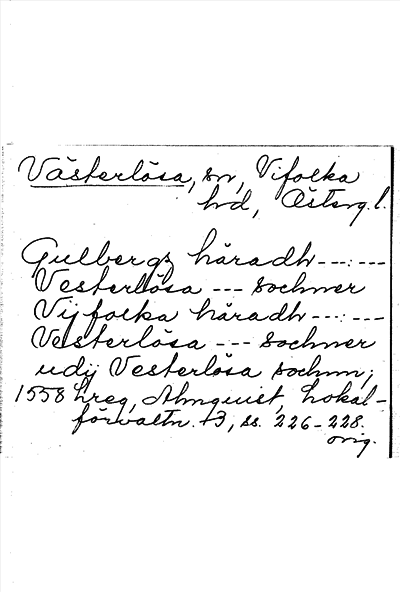 Västerlösa, sn, Vifolka
hd, Österg.l.
Gulbergs häradh ---:---
Vesterlösa --- sochner
Vijfolka häradh ---:---
Vesterlösa --- sochner
udij Vesterlösa sochnn;
1558 hreg, Almquist, Lokal-
förvaltn. 13, ss. 226-228.
orig.